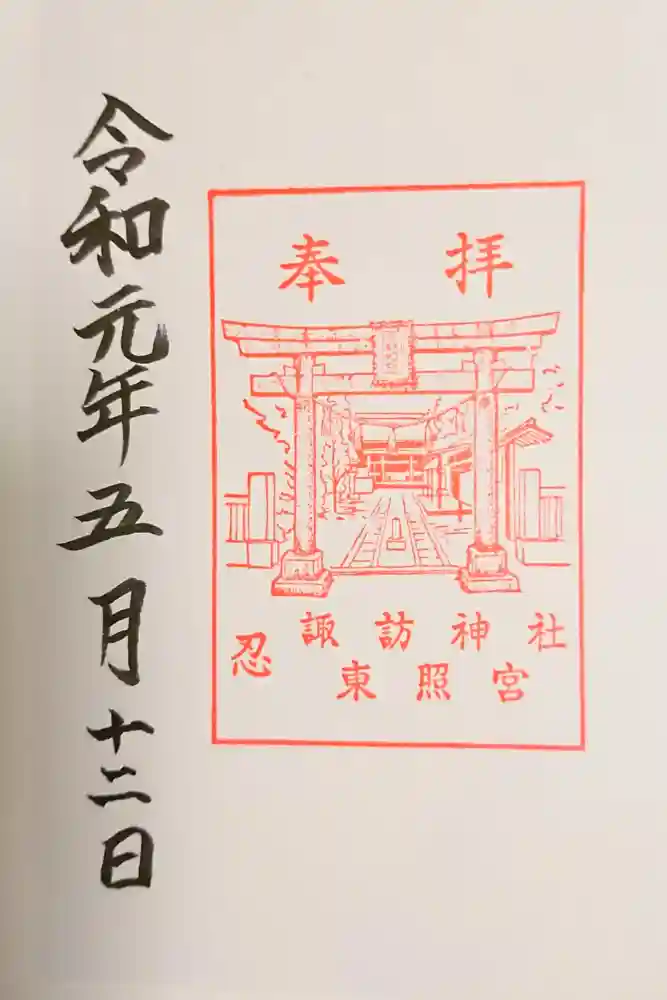 奉拝
忍 諏訪神社
東照宮
令和元年五月十二日